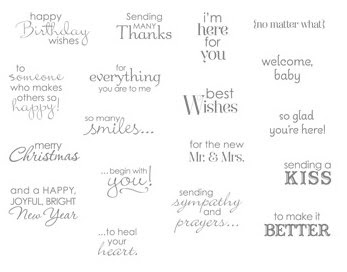 happy
Birthday
wishes
Sending
MANY
Thanks
i'm
here
for
you
{no matter what}
to
someone
who makes
others so
happy!
for
everything
you are to me
best
Wishes
welcome,
baby
so many
smiles...
so glad
you're here!
merry
Christmas
...begin with
you!
for the new
Mr. & Mrs.
sending a
KISS
and a HAPPY,
JOYFUL, BRIGHT
New Year
sending
sympathy
and
prayers...
to make it
BETTER
...to heal
your
heart.